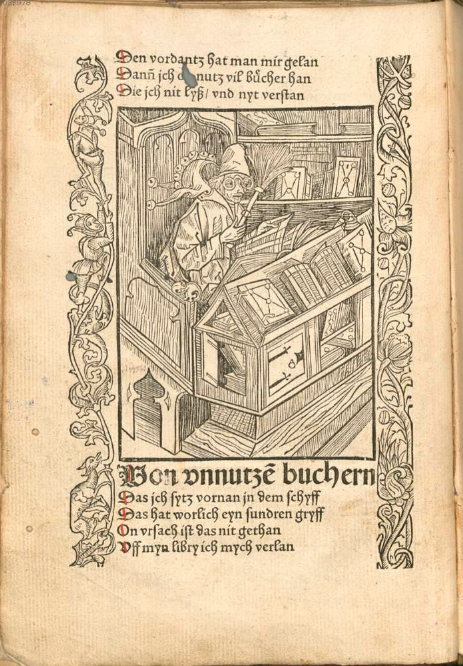 Den vordantz hat man mir gelan
Dann̄ jch on nutz vil buͤcher han
Die jch nit lyß/ vnd nyt verstan
Von vnnutzē buchern
Das jch sytz vornan jn dem schyff
Das hat worlich eyn sundren gryff
On vrsach ist das nit gethan
Vff myn libry ich mych verlan